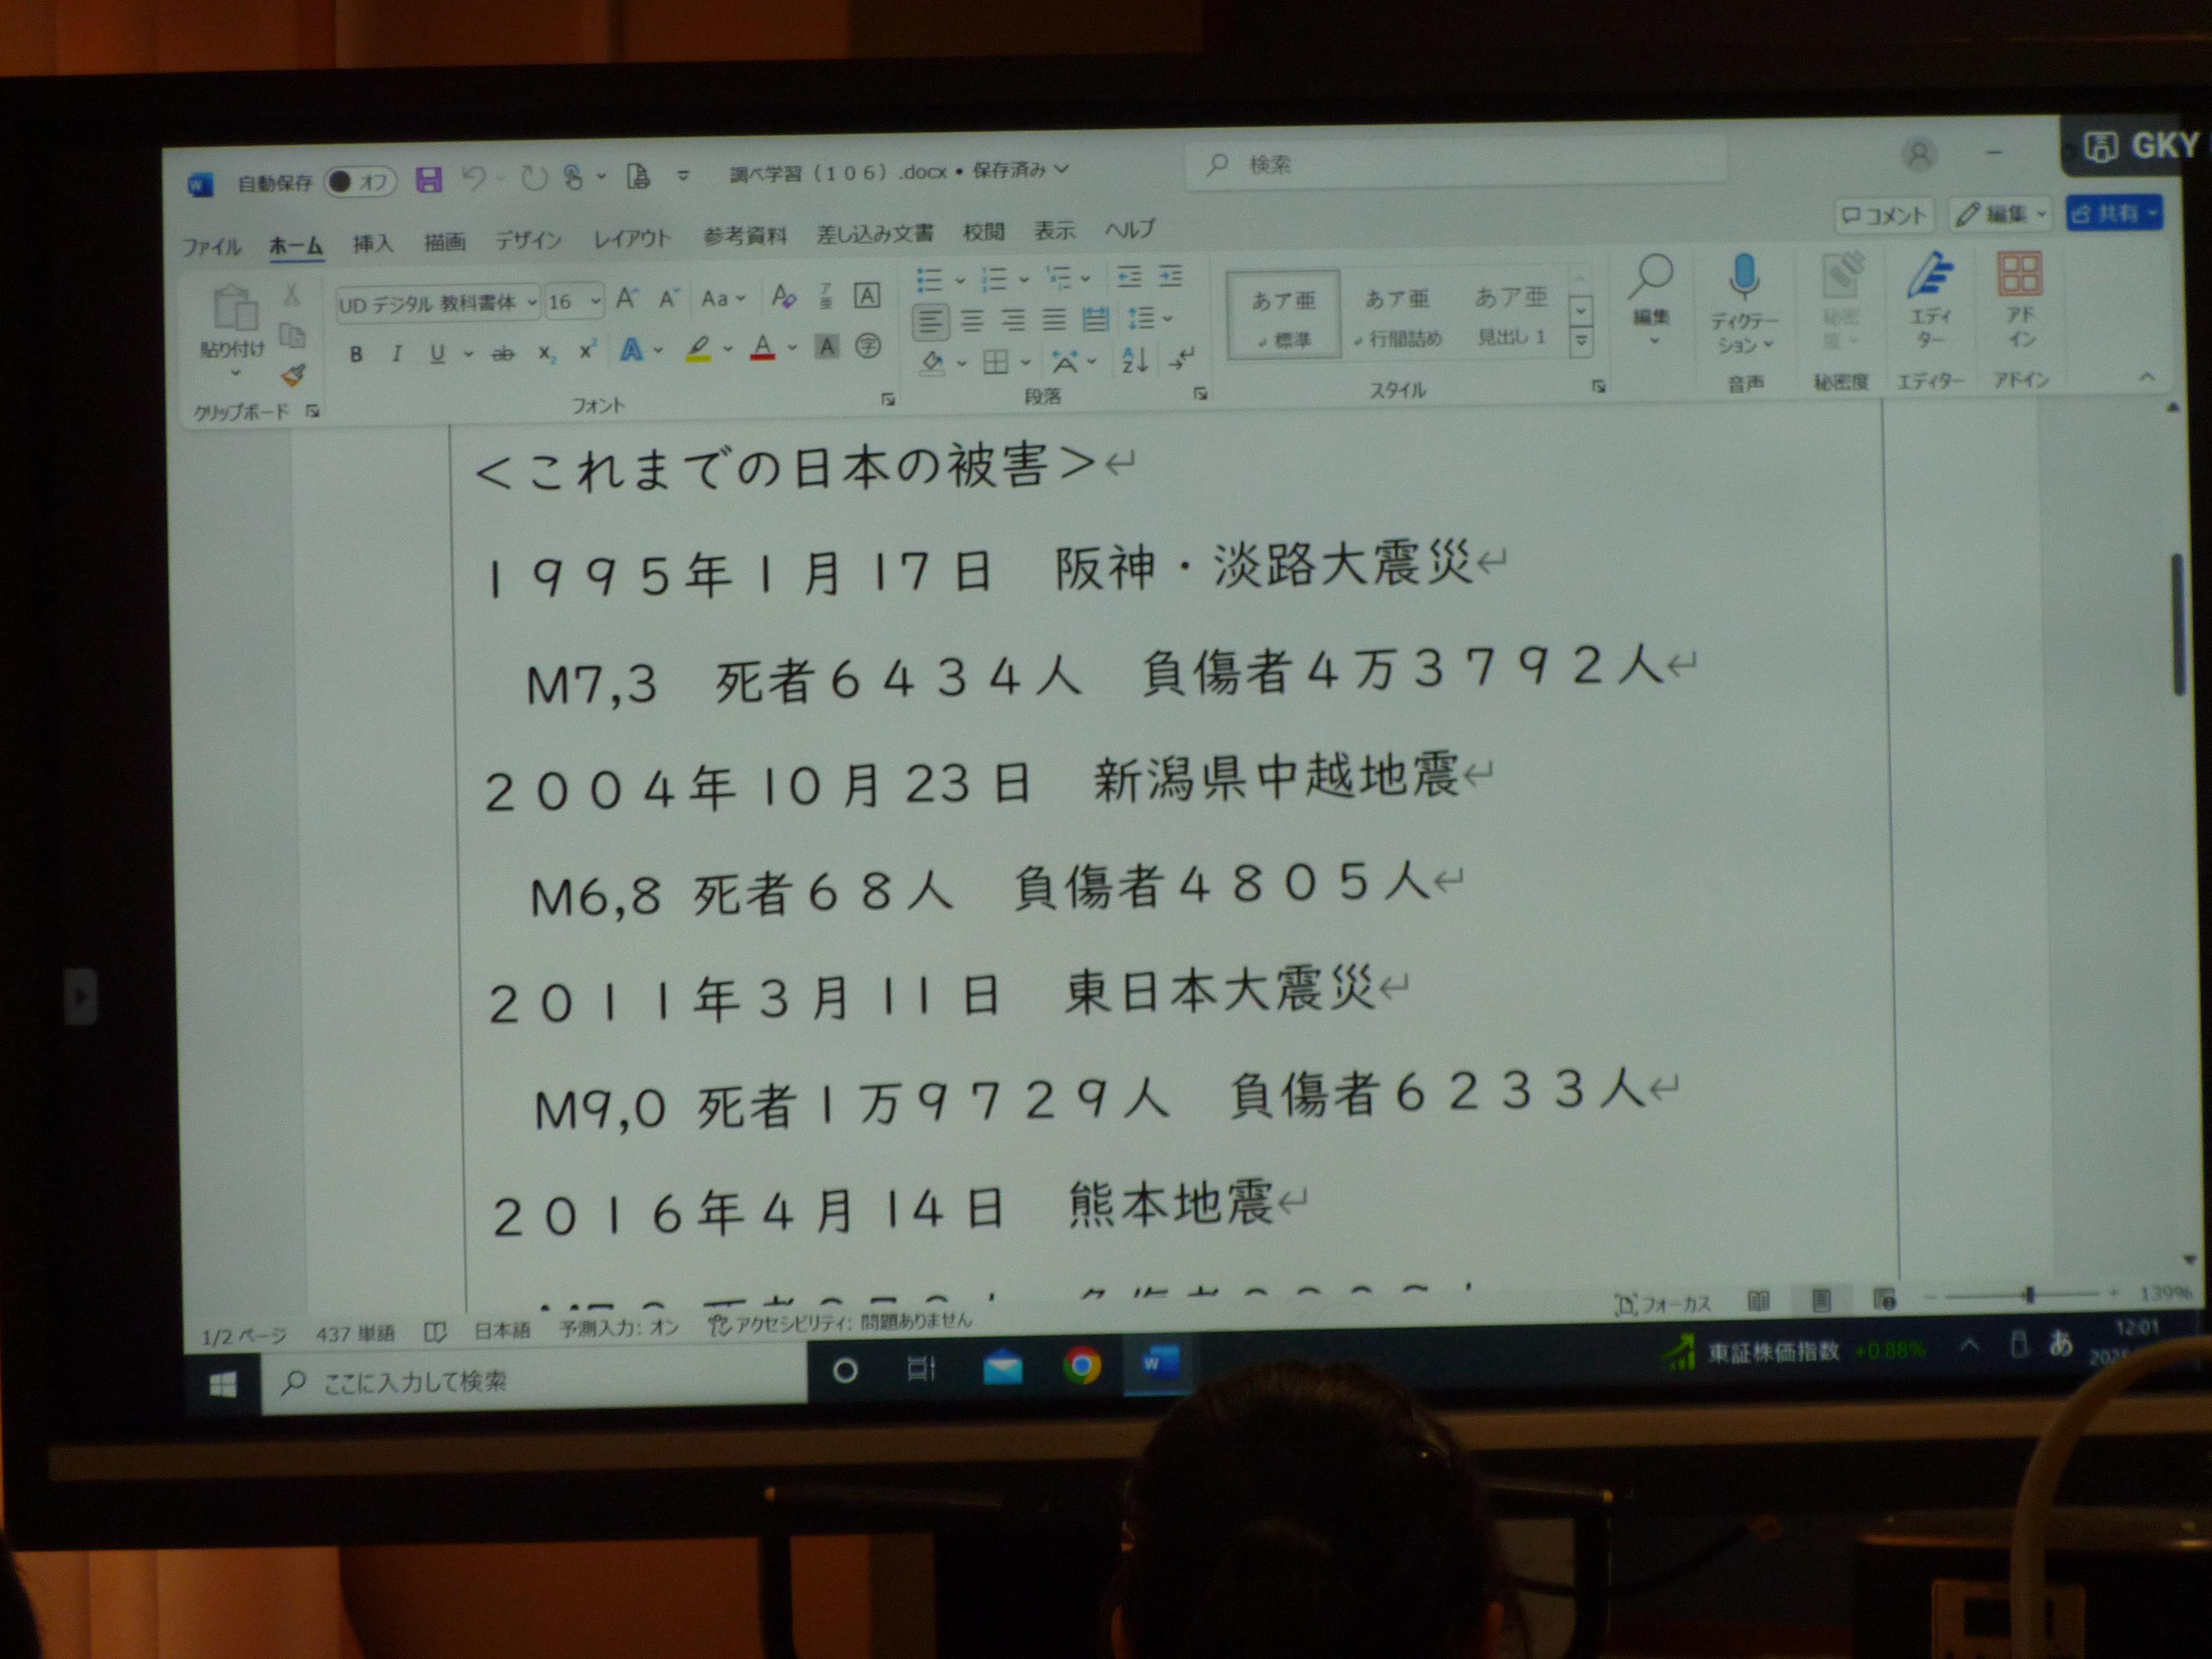 自動保存 オフ 調べ学習（１０６）.docx • 保存済み 検索 GKY
ファイル ホーム 挿入 描画 デザイン レイアウト 参考資料 差し込み文書 校閲 表示 ヘルプ コメント 編集 共有
貼り付け UD デジタル 教科書体 16 Aa A
B I U ab x₂ x² A A A 字
あア亜 標準 あア亜 行間詰め あア亜 見出し 1
編集 ディクテーション 秘密度 エディター アドイン
クリップボード フォント 段落 スタイル 音声 秘密度 エディター アドイン
＜これまでの日本の被害＞
１９９５年１月17日　阪神・淡路大震災
M7,3　死者６４３４人　負傷者４万３７９２人
２００４年10月23日　新潟県中越地震
M6,8 死者６８人　負傷者４８０５人
２０１１年３月11日　東日本大震災
M9,0 死者１万９７２９人　負傷者６２３３人
２０１６年４月14日　熊本地震
1/2 ページ 437 単語 日本語 予測入力: オン アクセシビリティ: 問題ありません フォーカス 139%
ここに入力して検索 東証株価指数 +0.88% あ 12:01